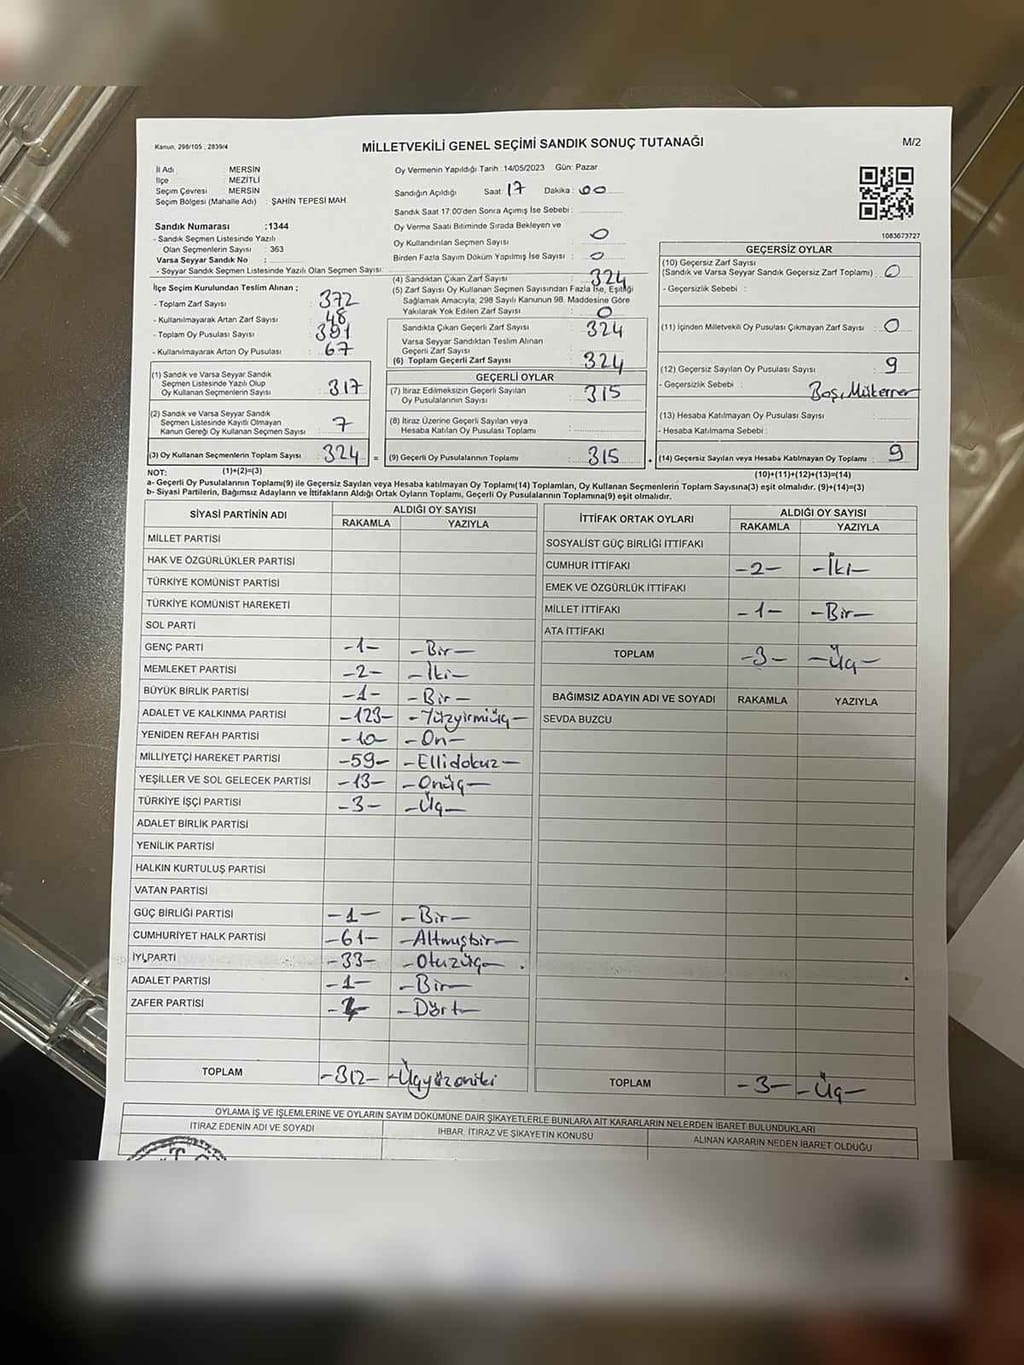 Kanun, 298/105 , 2839/4
MİLLETVEKİLİ GENEL SEÇİMİ SANDIK SONUÇ TUTANAĞI
M/2
İl Adı : MERSİN
İlçe : MEZİTLİ
Seçim Çevresi : MERSİN
Seçim Bölgesi (Mahalle Adı) : ŞAHİN TEPESİ MAH
Sandık Numarası :1344
- Sandık Seçmen Listesinde Yazılı
Olan Seçmenlerin Sayısı : 363
Varsa Seyyar Sandık No :
- Seyyar Sandık Seçmen Listesinde Yazılı Olan Seçmen Sayısı :
Oy Vermenin Yapıldığı Tarih :14/05/2023 Gün: Pazar
Sandığın Açıldığı Saat : 17 Dakika : 00
Sandık Saat 17:00'den Sonra Açımış İse Sebebi :
Oy Verme Saati Bitiminde Sırada Bekleyen ve
Oy Kullandırılan Seçmen Sayısı : 0
Birden Fazla Sayım Döküm Yapılmış İse Sayısı : 0
1083673727
İlçe Seçim Kurulundan Teslim Alınan :
- Toplam Zarf Sayısı : 372
- Kullanılmayarak Artan Zarf Sayısı : 48
- Toplam Oy Pusulası Sayısı : 391
- Kullanılmayarak Artan Oy Pusulası : 67
(1) Sandık ve Varsa Seyyar Sandık
Seçmen Listesinde Yazılı Olup
Oy Kullanan Seçmenlerin Sayısı : 317
(2) Sandık ve Varsa Seyyar Sandık
Seçmen Listesinde Kayıtlı Olmayan
Kanun Gereği Oy Kullanan Seçmen Sayısı : 7
(3) Oy Kullanan Seçmenlerin Toplam Sayısı : 324
(4) Sandıktan Çıkan Zarf Sayısı : 324
(5) Zarf Sayısı Oy Kullanan Seçmen Sayısından Fazla İse, Eşitliği
Sağlamak Amacıyla, 298 Sayılı Kanunun 98. Maddesine Göre
Yakılarak Yok Edilen Zarf Sayısı : 0
Sandıkta Çıkan Geçerli Zarf Sayısı : 324
Varsa Seyyar Sandıktan Teslim Alınan
Geçerli Zarf Sayısı :
(6) Toplam Geçerli Zarf Sayısı : 324
GEÇERLİ OYLAR
(7) İtiraz Edilmeksizin Geçerli Sayılan
Oy Pusulalarının Sayısı : 315
(8) İtiraz Üzerine Geçerli Sayılan veya
Hesaba Katılan Oy Pusulası Toplamı :
= (9) Geçerli Oy Pusulalarının Toplamı : 315
GEÇERSİZ OYLAR
(10) Geçersiz Zarf Sayısı
(Sandık ve Varsa Seyyar Sandık Geçersiz Zarf Toplamı) : 0
- Geçersizlik Sebebi :
(11) İçinden Milletvekili Oy Pusulası Çıkmayan Zarf Sayısı : 0
(12) Geçersiz Sayılan Oy Pusulası Sayısı : 9
- Geçersizlik Sebebi : Boş, Mükerrer
(13) Hesaba Katılmayan Oy Pusulası Sayısı :
- Hesaba Katılmama Sebebi :
(14) Geçersiz Sayılan veya Hesaba Katılmayan Oy Toplamı : 9
NOT: (1)+(2)=(3) (10)+(11)+(12)+(13)=(14)
a- Geçerli Oy Pusulalarının Toplamı(9) ile Geçersiz Sayılan veya Hesaba katılmayan Oy Toplamı(14) Toplamları, Oy Kullanan Seçmenlerin Toplam Sayısına(3) eşit olmalıdır. (9)+(14)=(3)
b- Siyasi Partilerin, Bağımsız Adayların ve İttifakların Aldığı Ortak Oyların Toplamı, Geçerli Oy Pusulalarının Toplamına(9) eşit olmalıdır.
SİYASİ PARTİNİN ADI ALDIĞI OY SAYISI
RAKAMLA YAZIYLA
MİLLET PARTİSİ
HAK VE ÖZGÜRLÜKLER PARTİSİ
TÜRKİYE KOMÜNİST PARTİSİ
TÜRKİYE KOMÜNİST HAREKETİ
SOL PARTİ
GENÇ PARTİ -1- -Bir-
MEMLEKET PARTİSİ -2- -İki-
BÜYÜK BİRLİK PARTİSİ -1- -Bir-
ADALET VE KALKINMA PARTİSİ -123- -Yüzyirmiüç-
YENİDEN REFAH PARTİSİ -10- -On-
MİLLİYETÇİ HAREKET PARTİSİ -59- -Ellidokuz-
YEŞİLLER VE SOL GELECEK PARTİSİ -13- -Onüç-
TÜRKİYE İŞÇİ PARTİSİ -3- -Üç-
ADALET BİRLİK PARTİSİ
YENİLİK PARTİSİ
HALKIN KURTULUŞ PARTİSİ
VATAN PARTİSİ
GÜÇ BİRLİĞİ PARTİSİ -1- -Bir-
CUMHURİYET HALK PARTİSİ -61- -Altmışbir-
İYİ PARTİ -33- -Otuzüç-
ADALET PARTİSİ -1- -Bir-
ZAFER PARTİSİ -4- -Dört-
TOPLAM -312- -Üçyüzoniki
İTTİFAK ORTAK OYLARI ALDIĞI OY SAYISI
RAKAMLA YAZIYLA
SOSYALİST GÜÇ BİRLİĞİ İTTİFAKI
CUMHUR İTTİFAKI -2- -İki-
EMEK VE ÖZGÜRLÜK İTTİFAKI
MİLLET İTTİFAKI -1- -Bir-
ATA İTTİFAKI
TOPLAM -3- -Üç-
BAĞIMSIZ ADAYIN ADI VE SOYADI RAKAMLA YAZIYLA
SEVDA BUZCU
TOPLAM -3- -Üç-
OYLAMA İŞ VE İŞLEMLERİNE VE OYLARIN SAYIM DÖKÜMÜNE DAİR ŞİKAYETLERLE BUNLARA AİT KARARLARIN NELERDEN İBARET BULUNDUKLARI
İTİRAZ EDENİN ADI VE SOYADI İHBAR, İTİRAZ VE ŞİKAYETİN KONUSU ALINAN KARARIN NEDEN İBARET OLDUĞU